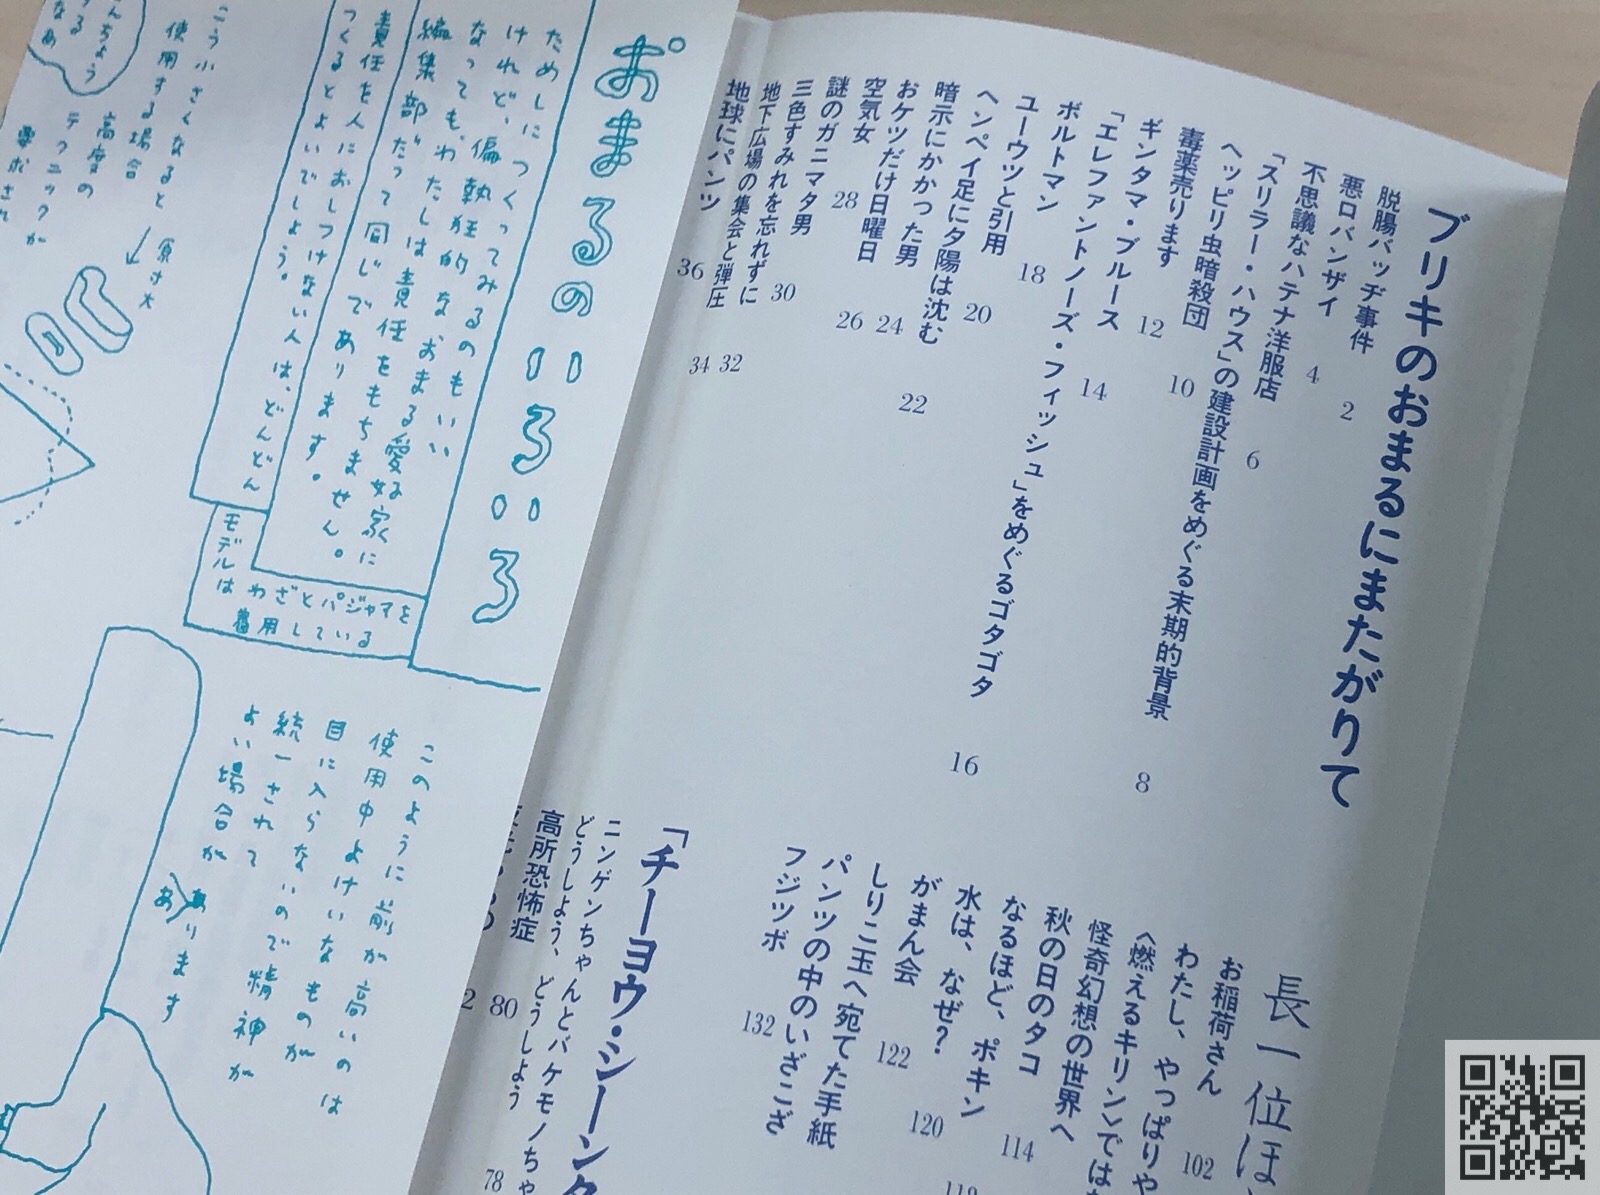 ブリキのおまるにまたがりて
脱腸バッヂ事件 2
悪ロバンザイ 4
不思議なハテナ洋服店 6
「スリラー・ハウス」の建設計画をめぐる末期的背景 8
ヘッピリ虫暗殺団 10
毒薬売ります 12
ギンタマ・ブルース 14
「エレファントノーズ・フィッシュ」をめぐるゴタゴタ 16
ボルトマン 18
ユーウツと引用 20
ヘンペイ足に夕陽は沈む 22
暗示にかかった男 24
おケツだけ日曜日 26
空気女 28
謎のガニマタ男 30
三色すみれを忘れずに 32
地下広場の集会と弾圧 34
地球にパンツ 36
長一位ほ
お稲荷さん 102
わたし、やっぱりや
〈燃えるキリン〉では
怪奇幻想の世界へ
秋の日のタコ 114
なるほど、ポキン
水は、なぜ? 120
がまん会 122
しりこ玉へ宛てた手紙
パンツの中のいざこざ
フジツボ 132
「チーヨウ・シーンタ
ニンゲンちゃんとバケモノちゃ
どうしよう、どうしよう 78
高所恐怖症 80
おまるのいろいろ
ためしにつくってみるのもいい
けれど、偏執狂的なおまる愛好家に
なっても、わたしは責任をもちません。
編集部だって同じであります。
責任を人におしつけない人は、どんどん
つくるとよいでしょう。
モデルはわざとパジャマを
着用している
こう小さくなると
使用する場合
高度の
テクニックが
要求され
原寸大
このように前が高いのは
使用中よけいなものが
目に入らないので精神が
統一されて
よい場合が
あります